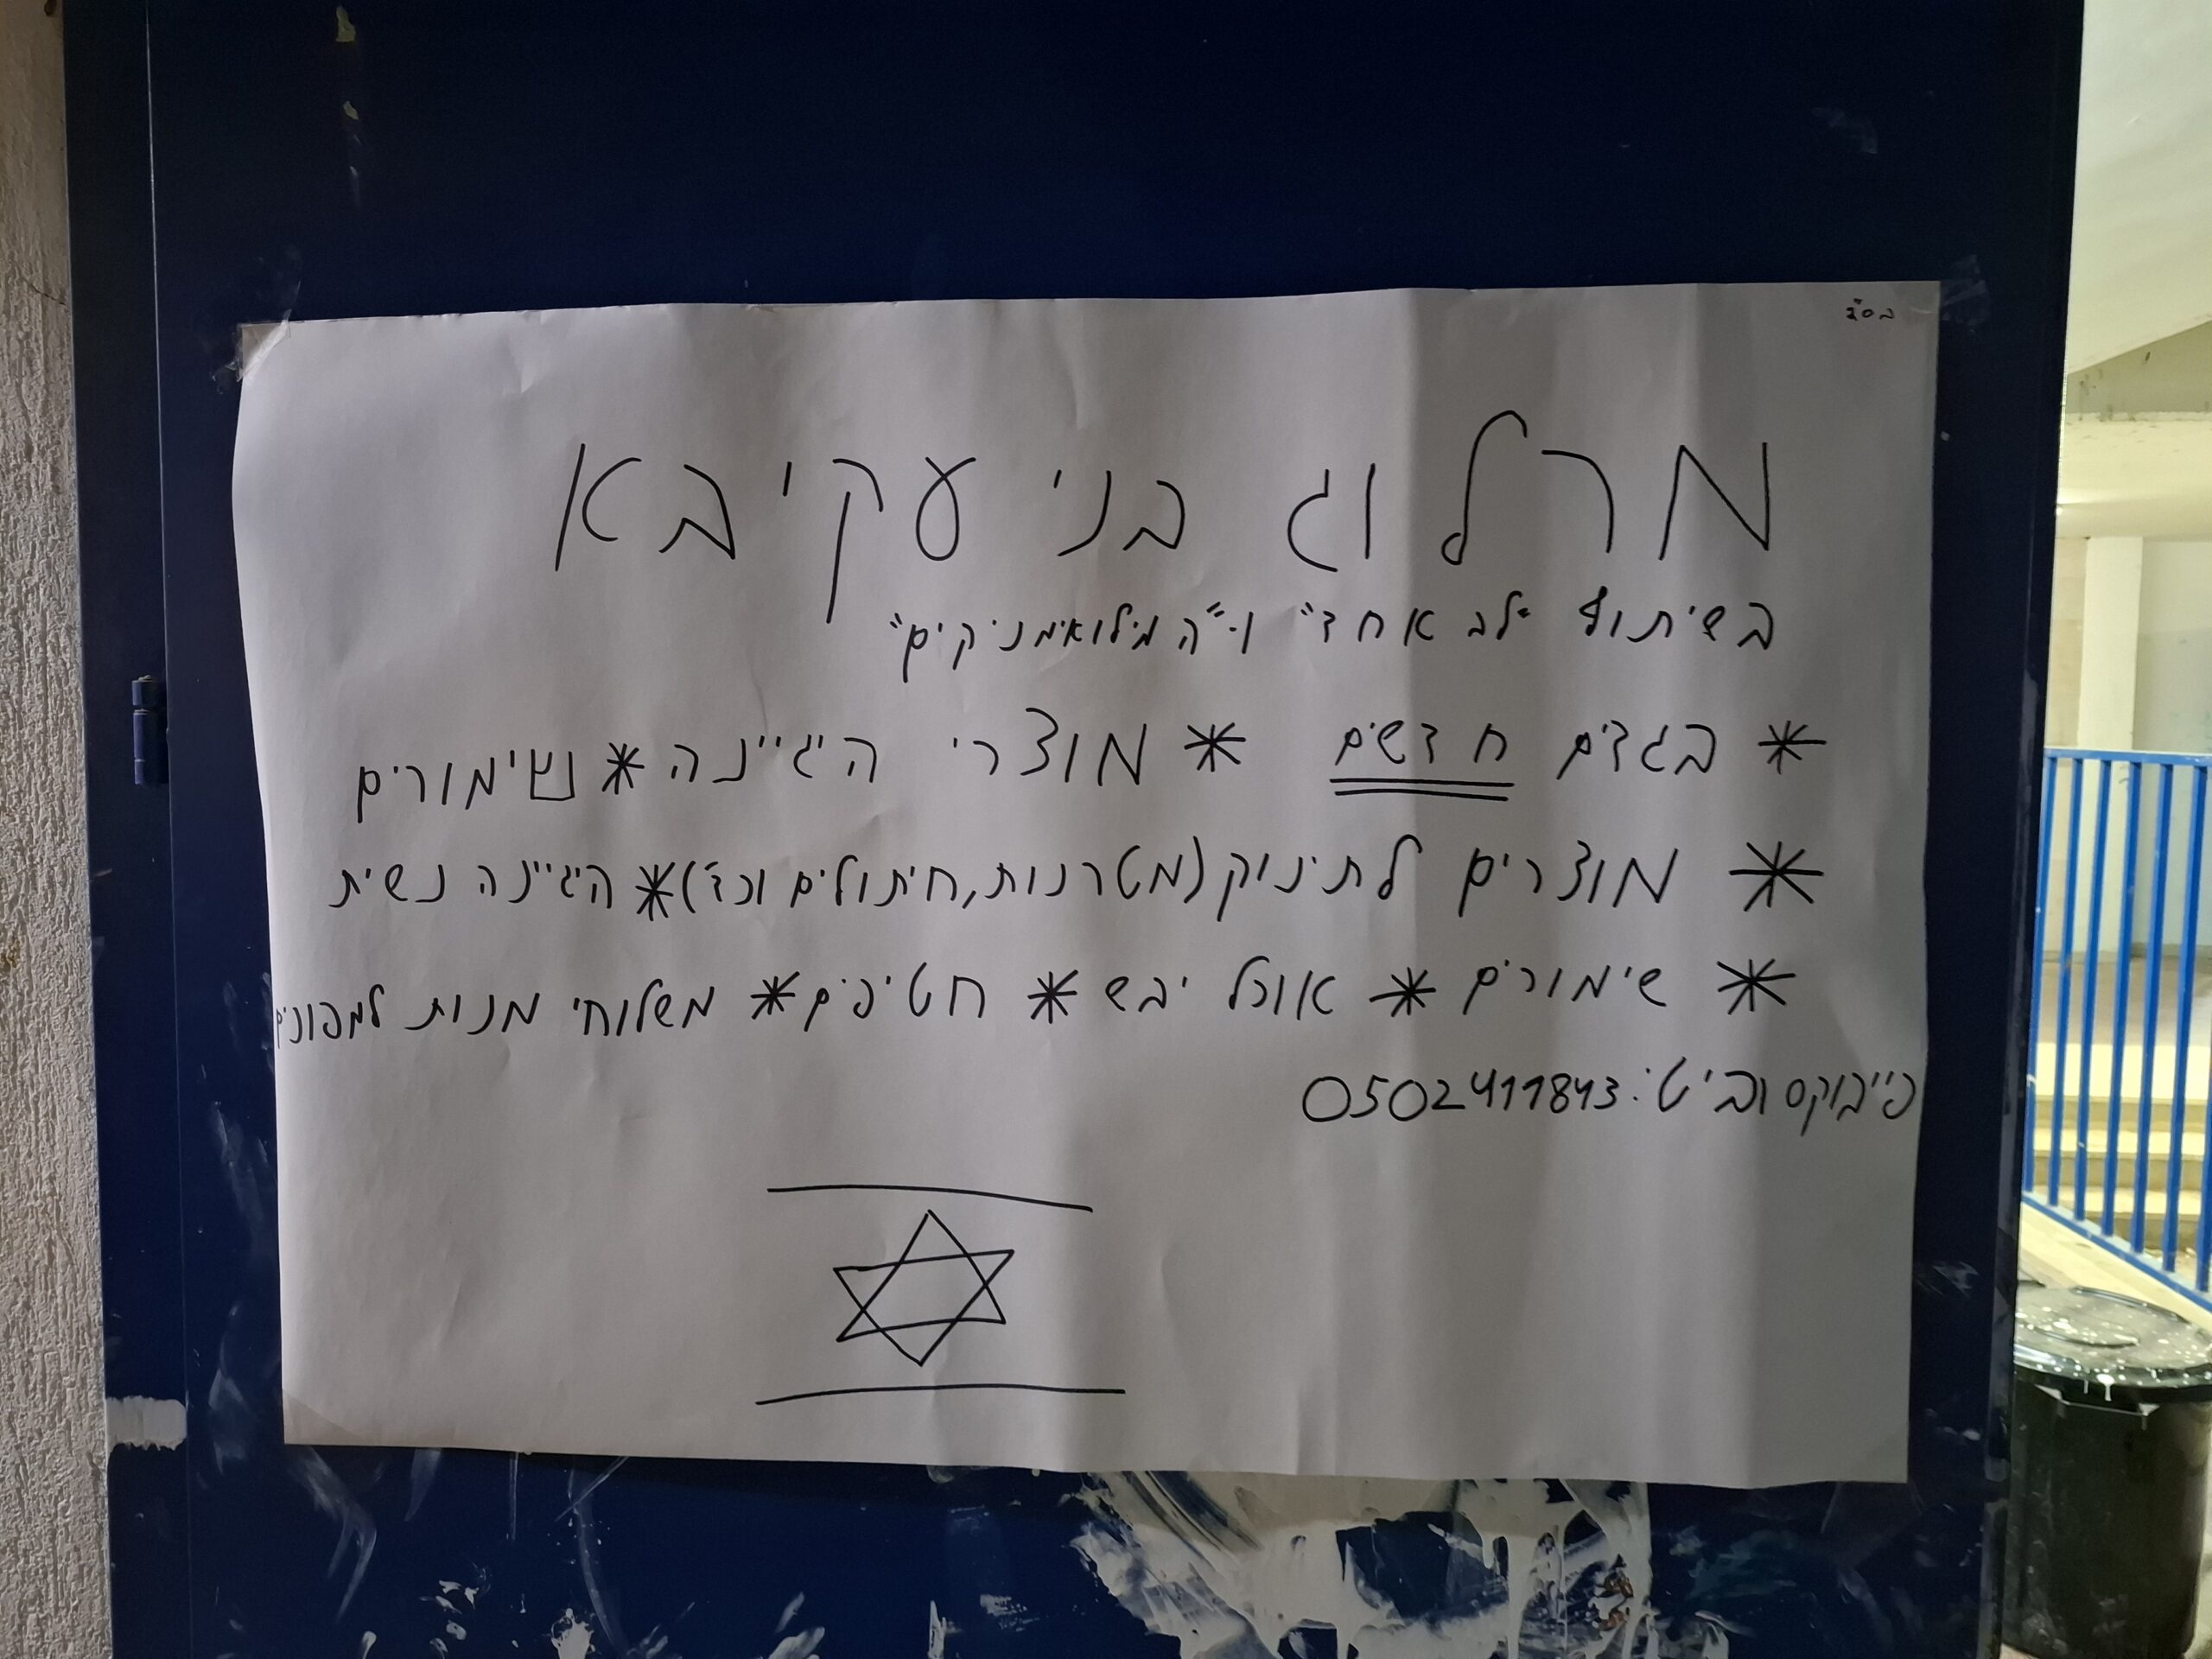 בס"ד
מרלוג בני עקיבא
בשיתוף "לב אחד" ו-"המילואימניקים"
* בגדים חדשים * מוצרי היגיינה * שימורים
* מוצרים לתינוק (מטרנות, חיתולים וכד') * היגיינה נשית
* שימורים * אוכל יבש * חטיפים * משלוחי מנות למפונים
פייבוקס וביט: 0502411843